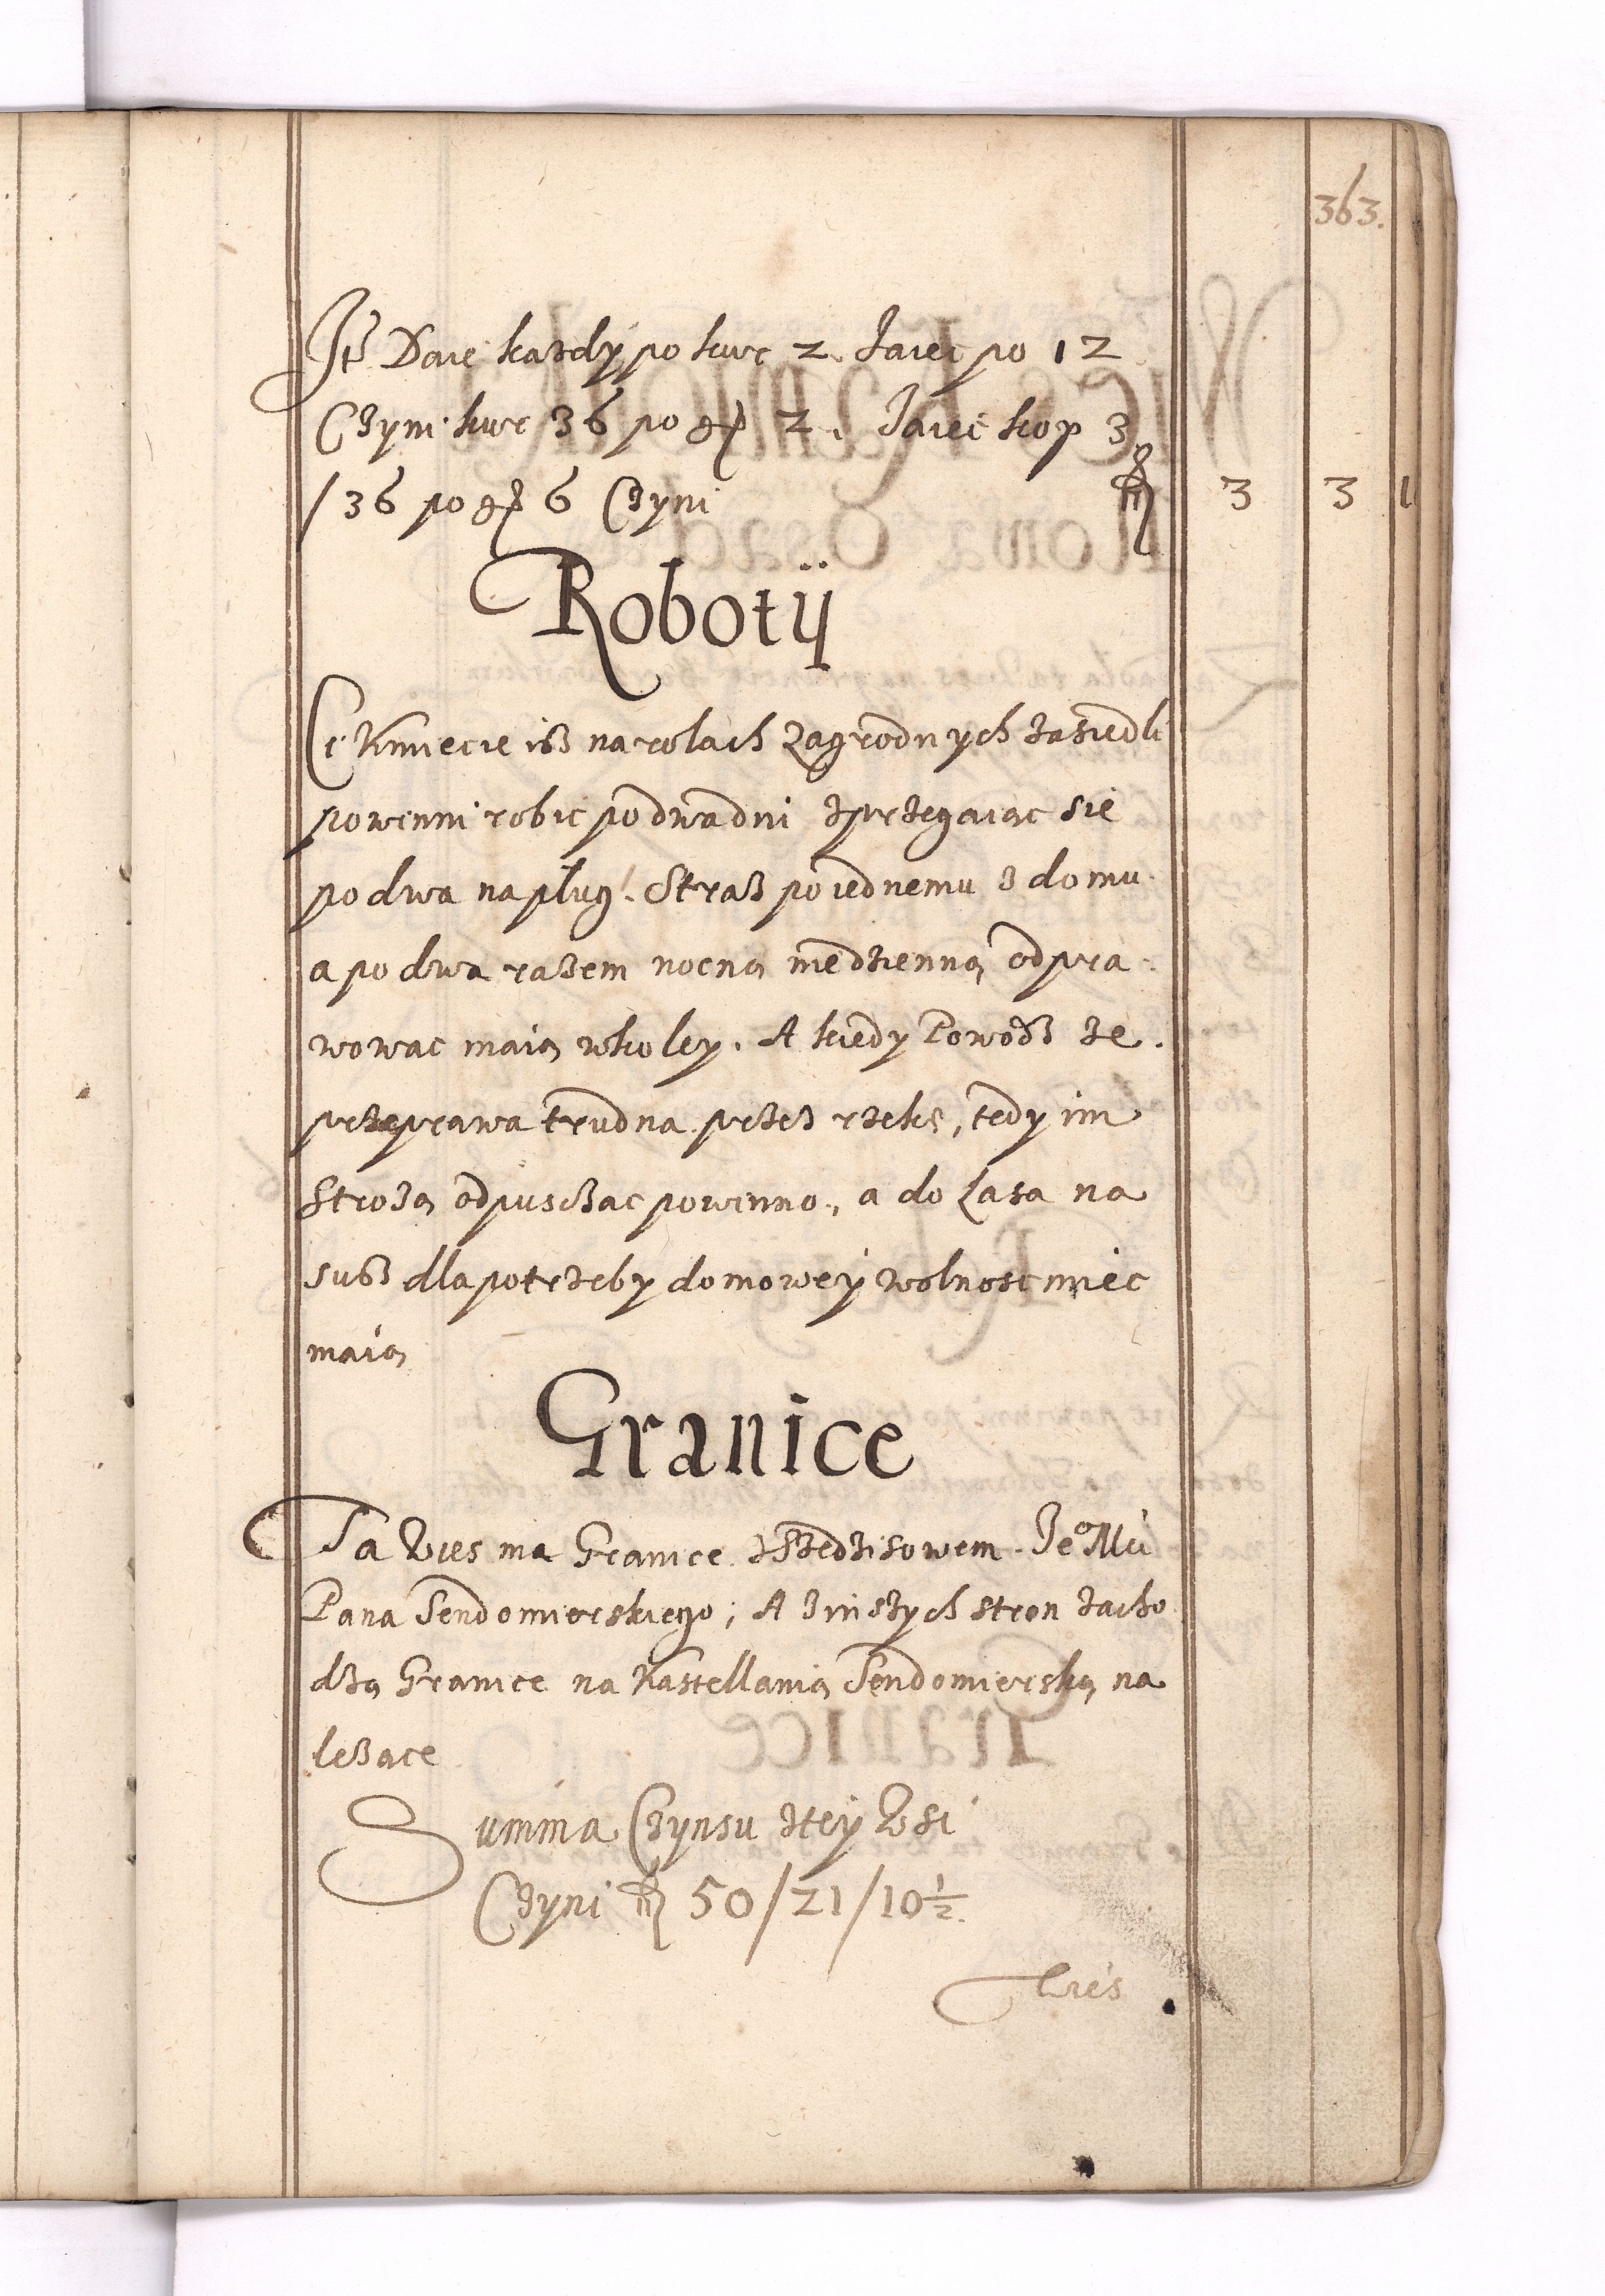 363.
Itē Daie kazdÿ po kur 2. Jaiec po 12
Czyni kur 36 po gr 2. Jaiec kop 3
/36 po gr 6 Czyni fl 3 3
Robotÿ
Ci Kmiecie isz na rolach Zagrodnych zasiedli
powinni robic po dwa dni zprzegaiac sie
po dwa na pług. Straz po iednemu z domu
a po dwa razem nocną niedzienną odpra-
wowac maią w koley. A kiedy Powodz ze
przeprawa trudna przez rzekę, tedy im
strozą odpusczac powinno, a do Lasa na
susz dla potrzeby domoweÿ wolnosc miec
maią
Granice
Ta Wies ma Granice z Jeo Mci
Pana Sendomierskiego; A z inszych stron zacho
dzą Granice na Kastellanią Sendomierską na
lezace
Summa Czynsu zteÿ Wsi
Czyni fl 50/21/10½
Wies